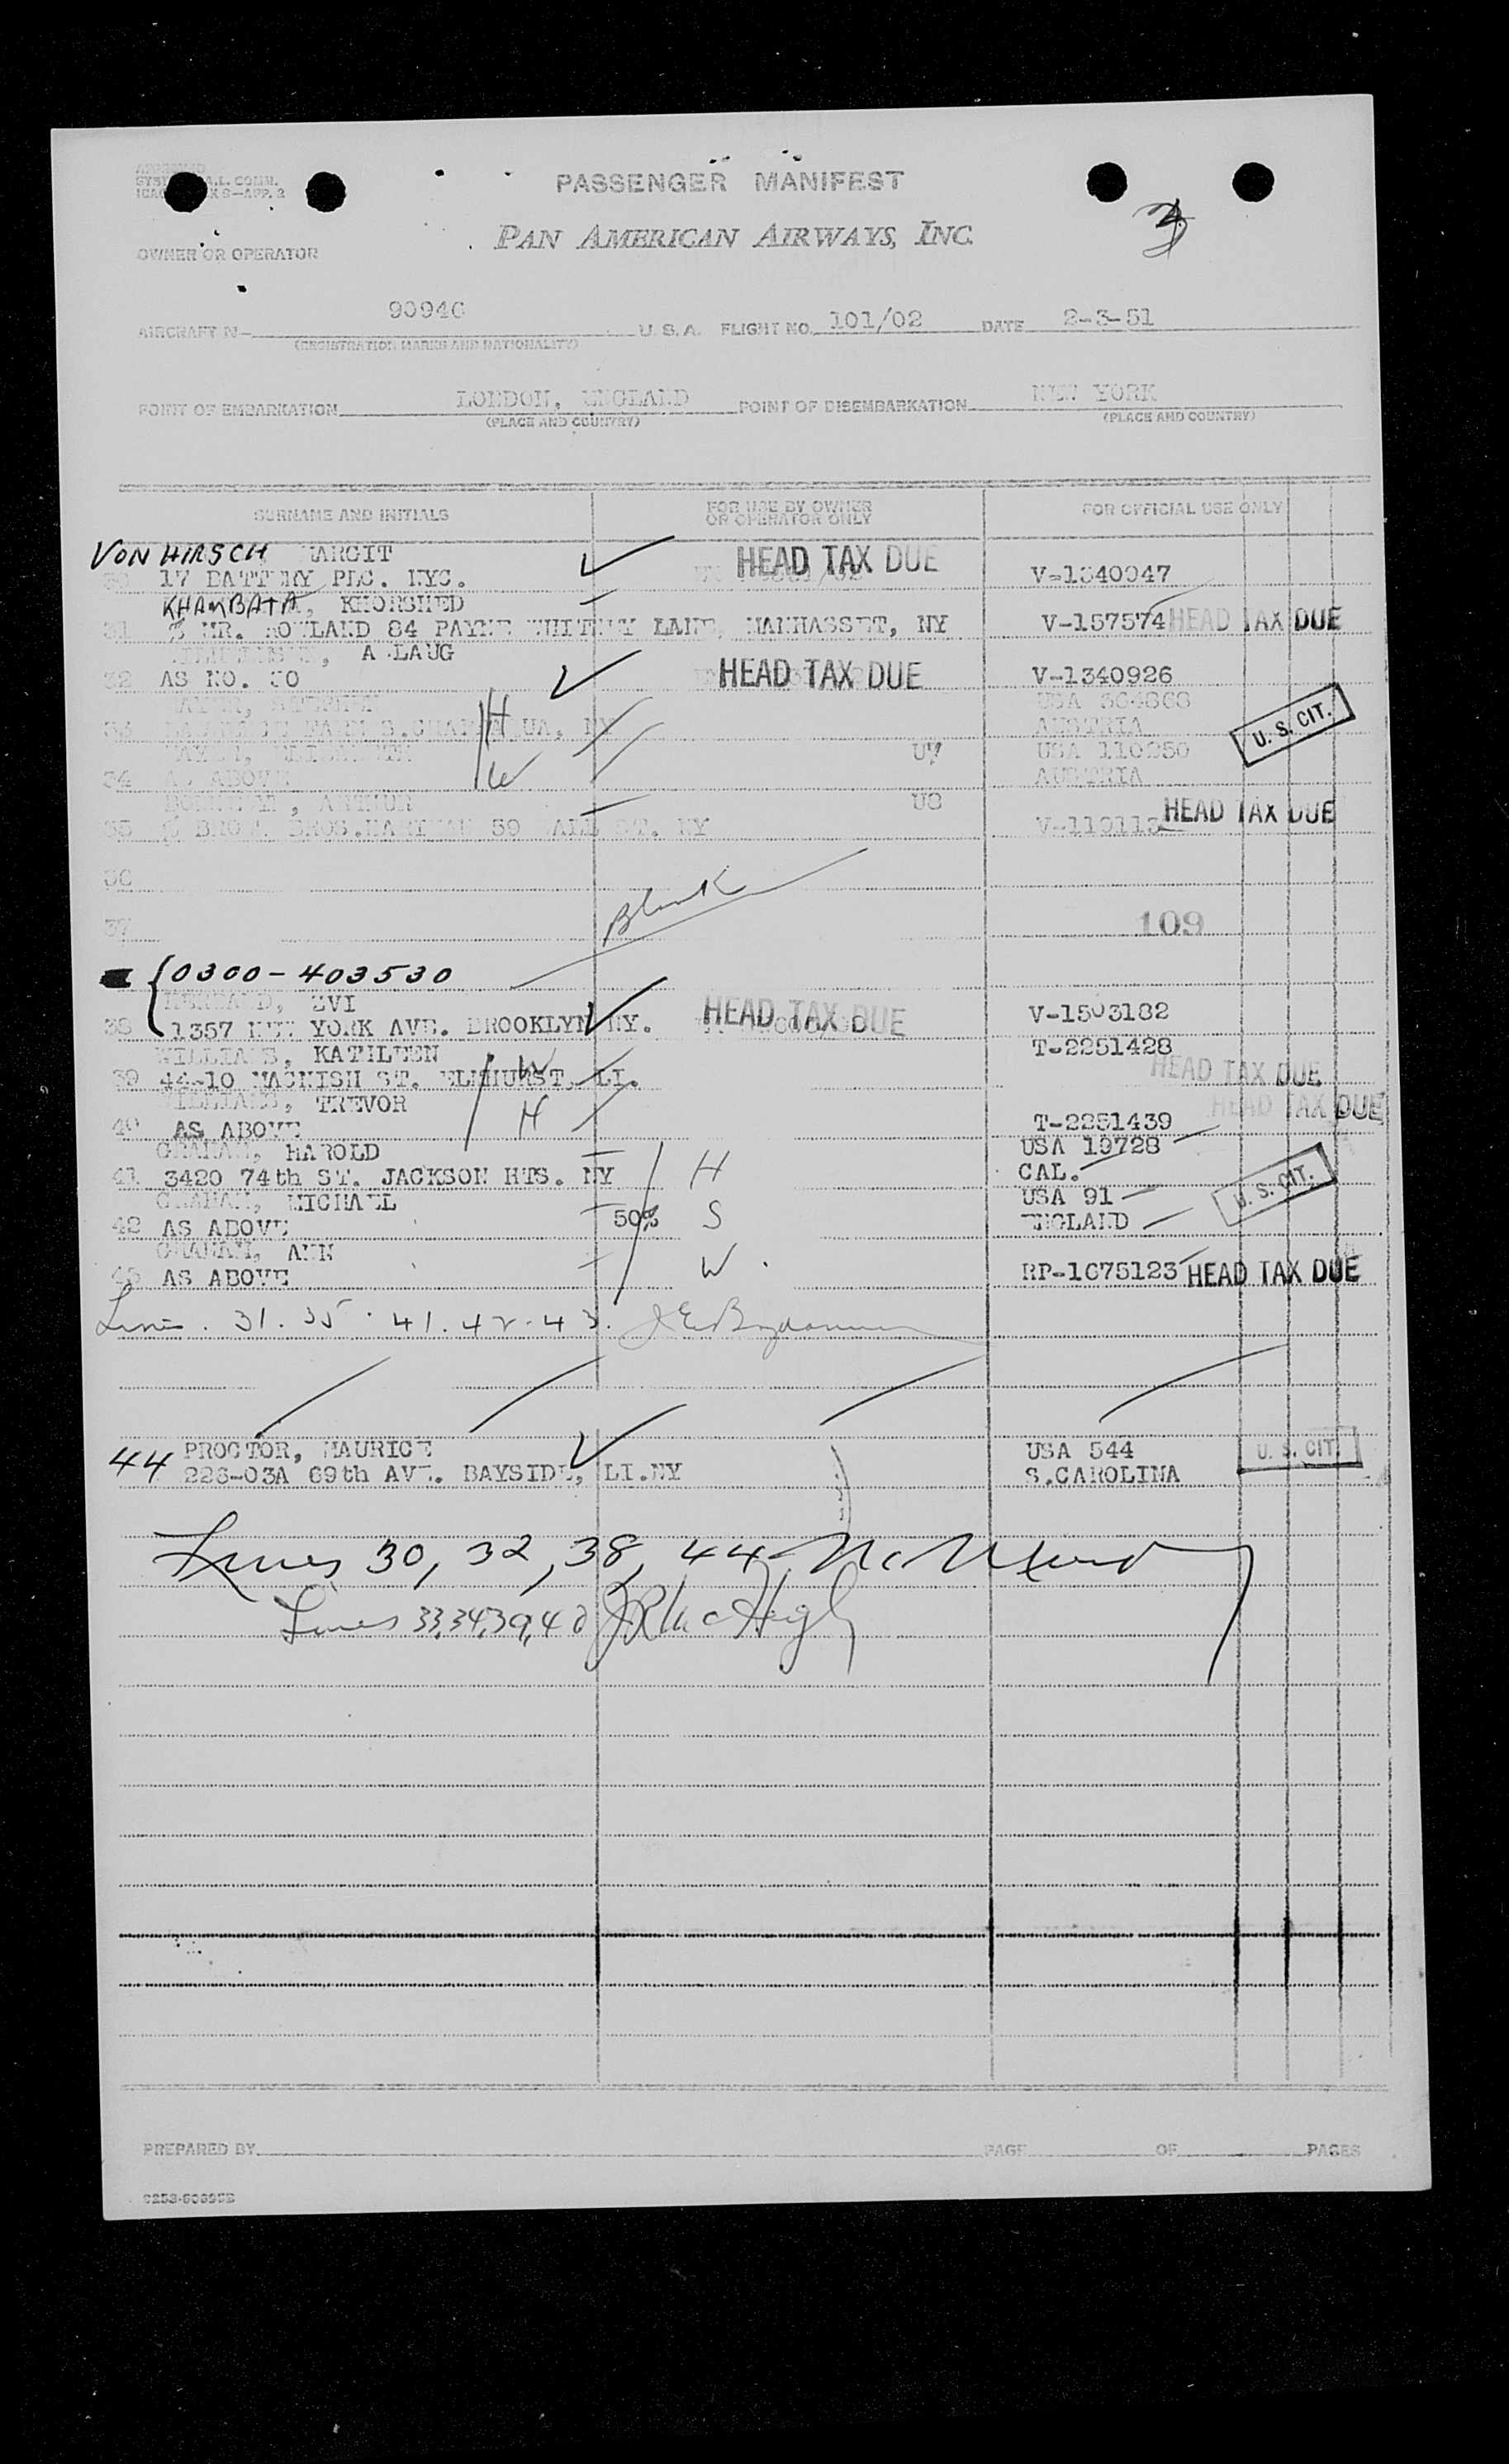 PASSENGER MANIFEST
PAN AMERICAN AIRWAYS, INC.
OWNER OR OPERATOR
AIRCRAFT N- 90940 U. S. A. FLIGHT NO. 101/02 DATE 2-3-51
(REGISTRATION MARKS AND NATIONALITY)
POINT OF EMBARKATION LONDON, ENGLAND POINT OF DISEMBARKATION NEW YORK
(PLACE AND COUNTRY) (PLACE AND COUNTRY)
SURNAME AND INITIALS FOR USE BY OWNER OR OPERATOR ONLY FOR OFFICIAL USE ONLY
VON HIRSCH, MARGIT HEAD TAX DUE
30 17 BATTERY PLC. NYC. V-1340947
KHAMBATA, KHORSHED
31 % MR. ROWLAND 84 PAYNE WHITNEY LANE, MANHASSET, NY V-157574 HEAD TAX DUE
32 AS NO. 30 HEAD TAX DUE V-1340926
H USA 364868
33 NY AUSTRIA U. S. CIT.
USA 110250
34 AS ABOVE W AUSTRIA
US
35 59 WALL ST. NY V-110113 HEAD TAX DUE
36
Blank
37 109
0300-403530
ZVI
38 1357 NEW YORK AVE. BROOKLYN NY. HEAD TAX DUE V-1503182
WILLIAMS, KATILEEN T-2251428
39 44-10 MACNISH ST. ELMHURST, LI. W HEAD TAX DUE
WILLIAMS, TREVOR HEAD TAX DUE
40 AS ABOVE H T-2251439
GRAHAM, HAROLD USA 19728
41 3420 74th ST. JACKSON HTS. NY H CAL.
GRAHAM, MICHAEL USA 91 U. S. CIT.
42 AS ABOVE 50% S ENGLAND
GRAHAM, ANN
43 AS ABOVE W. RP-1075123 HEAD TAX DUE
Lines. 31. 35. 41. 42. 43.
PROCTOR, MAURICE USA 544 U. S. CIT.
44 226-03A 69th AVE. BAYSIDE, LI.NY S.CAROLINA
Lines 30, 32, 38, 44
Lines 33,34,39,40
PREPARED BY PAGE OF PAGES